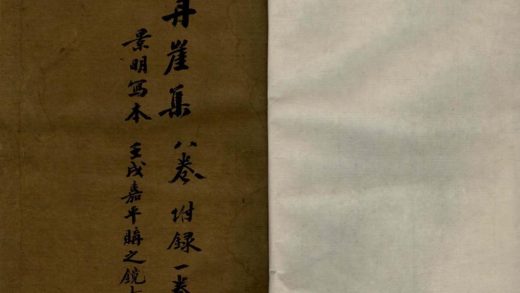 丹崖集八卷 附录一卷
景明写本 壬戌嘉平購之鏡